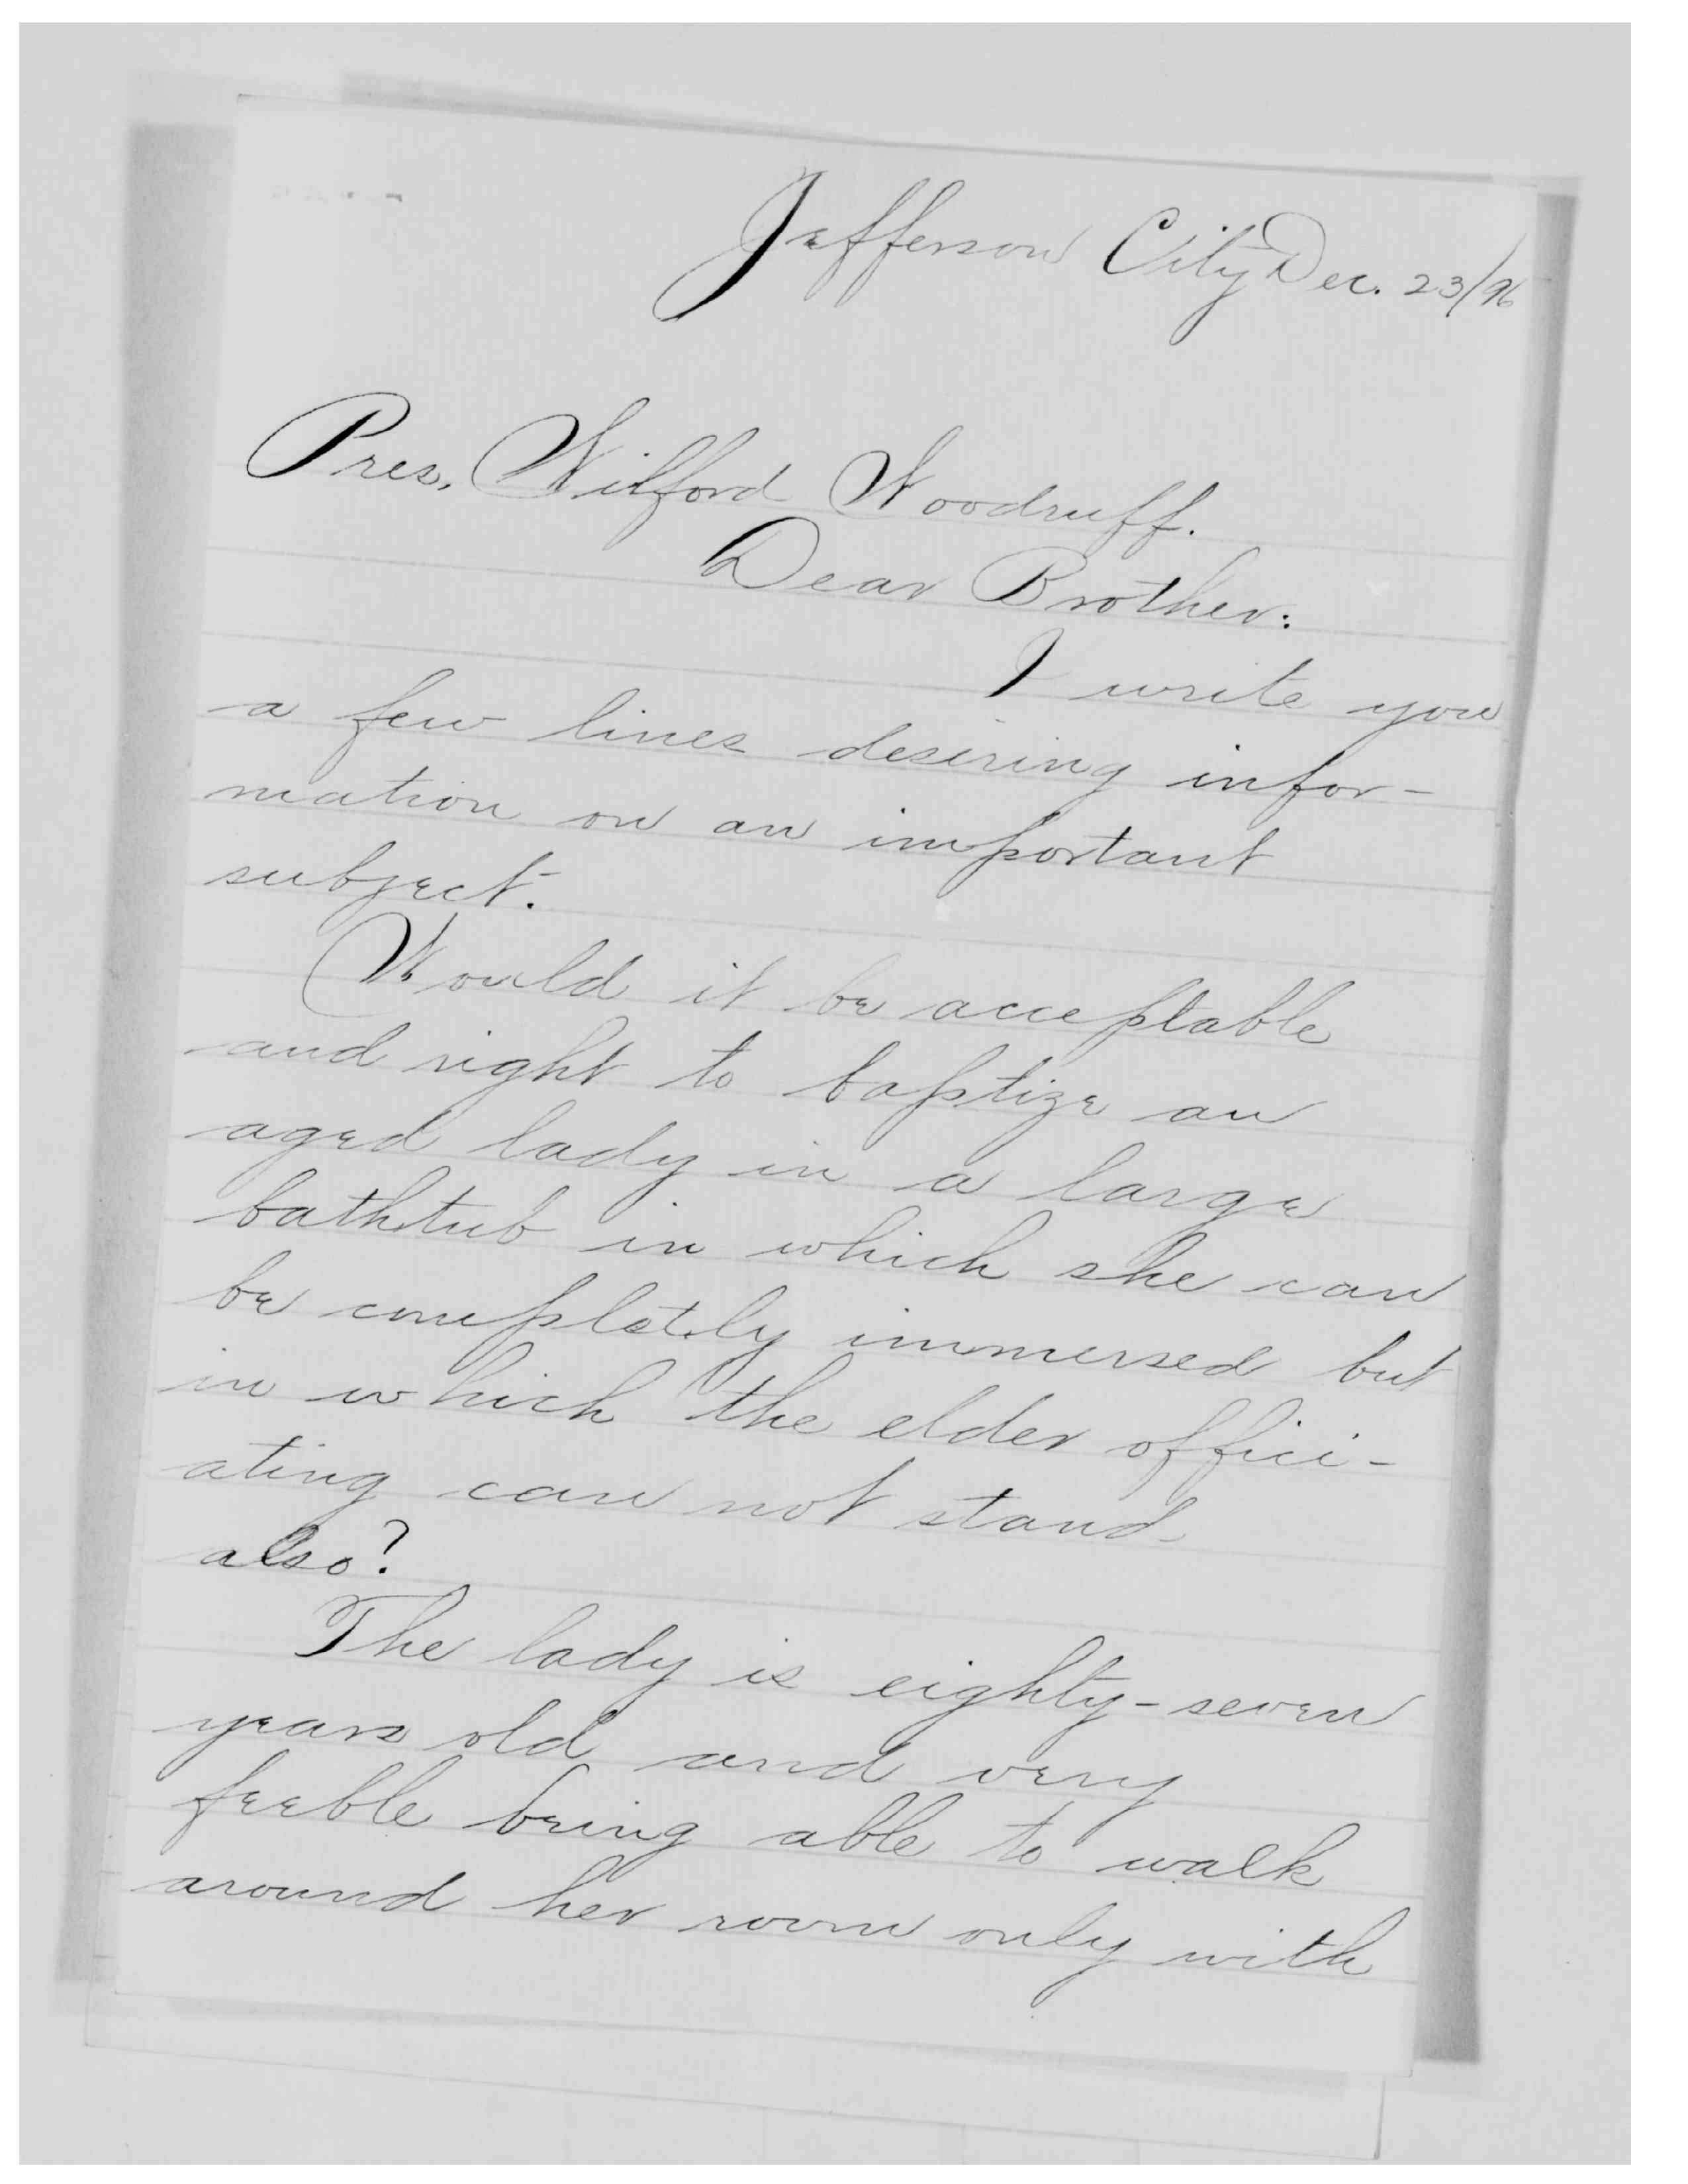 Jefferson City Dec. 23/96
Pres. Wilford Woodruff.
Dear Brother:
I write you
a few lines desiring infor-
mation on an important
subject.
Would it be acceptable
and right to baptize an
aged lady in a large
bathtub in which she can
be completely immersed but
in which the elder offici-
ating can not stand
also?
The lady is eighty-seven
years old and very
feeble being able to walk
around her room only with